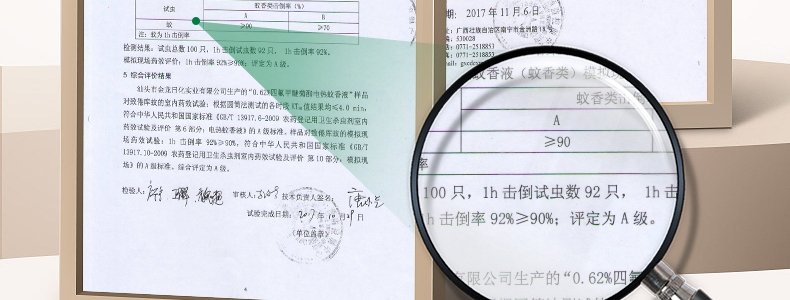 蚊香类击倒率(%)
试虫
A
B
蚊
≥90
≥70
注：蚊为1h击倒率
检测结果：试虫总数100只，1h击倒试虫数92只， 1h击倒率92%。
模拟现场药效评价：1h击倒率92%≥90%；评定为A级。
5 综合评价结果
汕头市金龙日化实业有限公司生产的“0.62%四氟甲醚菊酯电热蚊香液”样品
对致倦库蚊的室内药效试验：根据圆筒法测试的各时段KT50值结果均≤4.0 min,
符合中华人民共和国国家标准《GB/T 13917.6-2009 农药登记用卫生杀虫剂室内
药效试验及评价 第6部分：电热蚊香液》的A级标准。样品对致倦库蚊的模拟现
场药效试验：1h击倒率92%≥90%，符合中华人民共和国国家标准《GB/T
13917.10-2009 农药登记用卫生杀虫剂室内药效试验及评价 第10部分：模拟现
场》的A级标准。综合评定为A级。
检验人：
审核人：
技术负责人签名：
试验完成日期：2017年10月29日
(单位盖章)
4
期： 2017年11月6日
址：广西壮族自治区南宁市金洲路18号
编：530028
话：0771-2518853
真：0771-2518853
蚊香液（蚊香类）模拟
蚊香类击
A
≥90
率
100只，1h击倒试虫数92只， 1h击
1h击倒率92%≥90%；评定为A级。
有限公司生产的“0.62%四氟